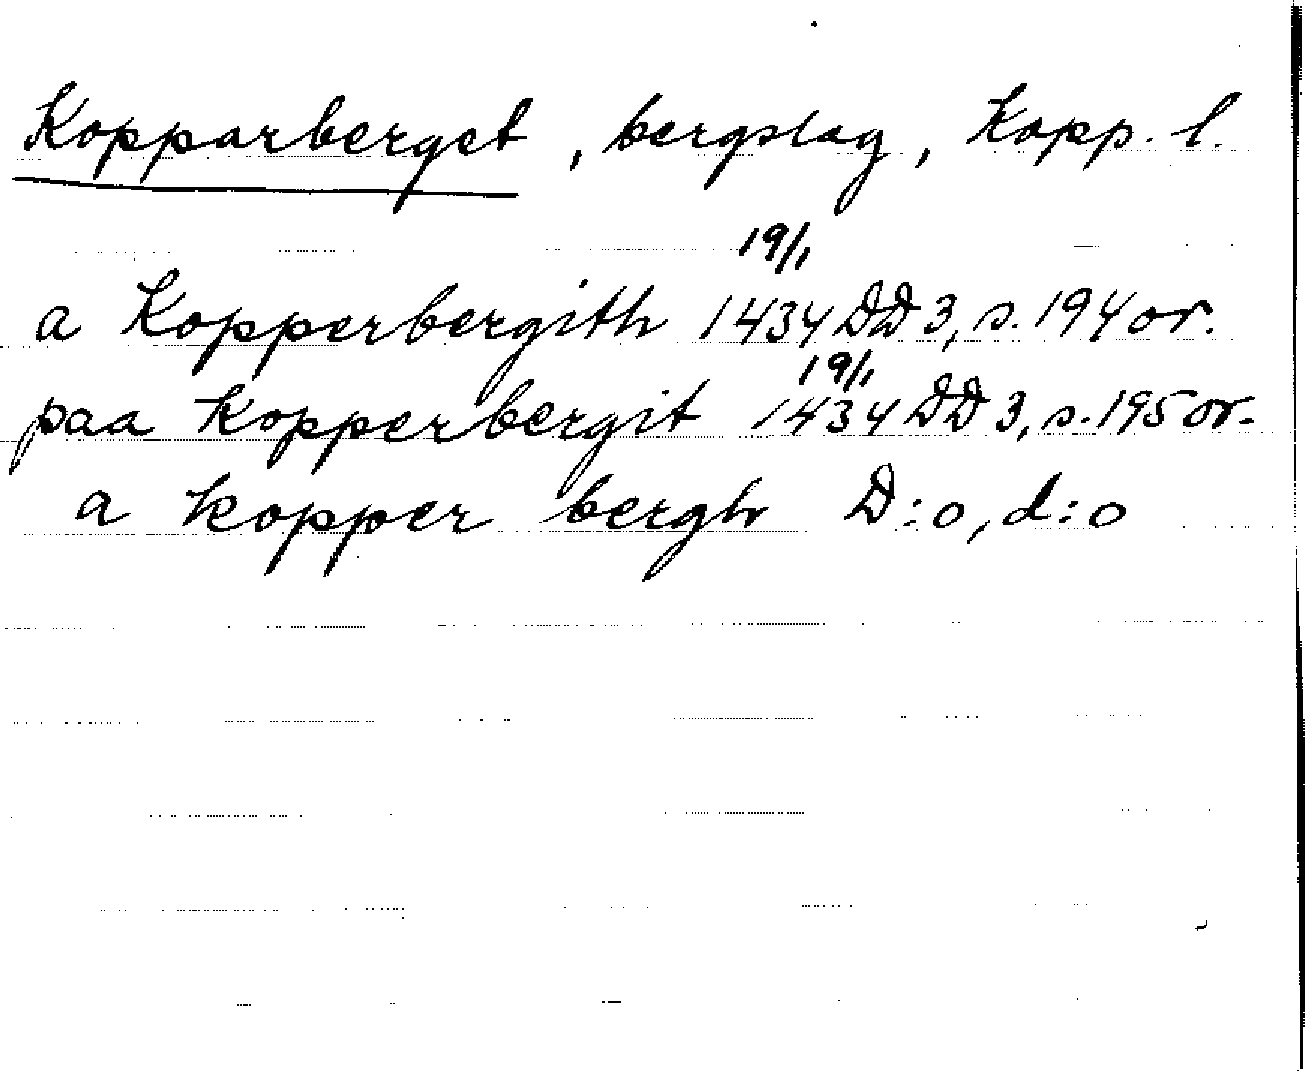 Kopparberget, bergslag, Kopp. l.
19/1
a Kopperbergith 1434 DD 3, s. 194 or.
19/1
paa kopperbergit 1434 DD 3, s. 195 or.
a kopper bergh D:o, d:o